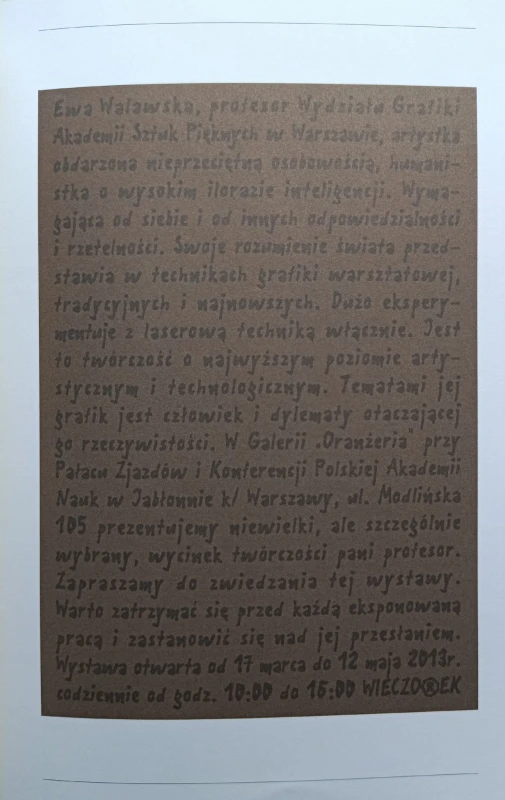 Ewa Walawska, profesor Wydziału Grafiki
Akademii Sztuk Pięknych w Warszawie, artystka
obdarzona nieprzeciętną osobowością, humani-
stka o wysokim ilorazie inteligencji. Wyma-
gająca od siebie i od innych odpowiedzialności
i rzetelności. Swoje rozumienie świata przed-
stawia w technikach grafiki warsztatowej,
tradycyjnych i najnowszych. Dużo ekspery-
mentuje z laserową techniką włącznie. Jest
to twórczość o najwyższym poziomie arty-
stycznym i technologicznym. Tematami jej
grafik jest człowiek i dylematy otaczającej
go rzeczywistości. W Galerii „Oranżeria" przy
Pałacu Zjazdów i Konferencji Polskiej Akademii
Nauk w Jabłonnie k/ Warszawy, ul. Modlińska
105 prezentujemy niewielki, ale szczególnie
wybrany, wycinek twórczości pani profesor.
Zapraszamy do zwiedzania tej wystawy.
Warto zatrzymać się przed każdą eksponowaną
pracą i zastanowić się nad jej przesłaniem.
Wystawa otwarta od 17 marca do 12 maja 2013r.
codziennie od godz. 10:00 do 16:00 WIECZO®EK